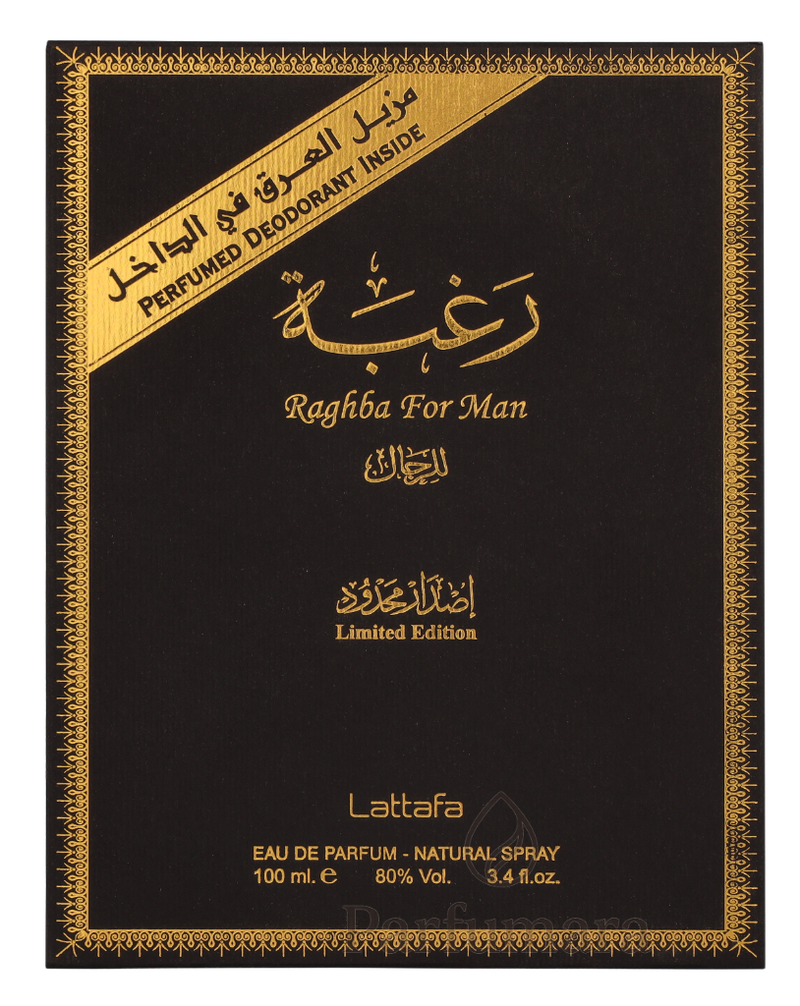 مزيل العرق في الداخل
PERFUMED DEODORANT INSIDE
رَغبة
Raghba For Man
للرجال
إصدار محدود
Limited Edition
Lattafa
EAU DE PARFUM - NATURAL SPRAY
100 ml. e 80% Vol. 3.4 fl.oz.
Parfumare